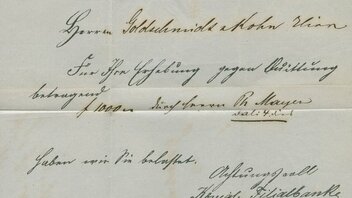 Herren Goldschmidt & Kohn Wien
Für Ihre Erhebung gegen Quittung
betragend
f 1000.- durch Herrn Ph. Mayer
haben wir Sie belastet.
Achtungsvoll
Königl. Filialbanke